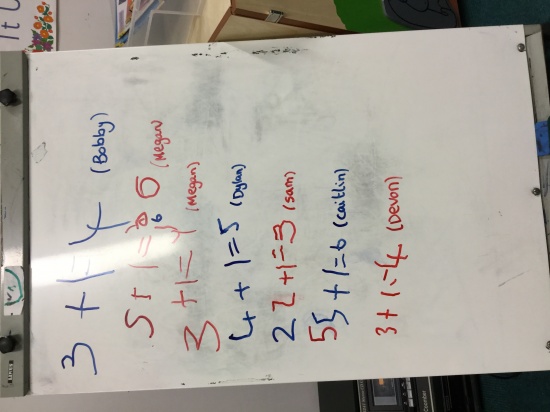 3 + 1 = 4 (Bobby)
5 + 1 = 6 (Megan)
3 + 1 = 4 (Megan)
4 + 1 = 5 (Dylan)
2 2 + 1 = 3 (Sam)
5 5 + 1 = 6 (Caitlin)
3 + 1 = 4 (Devon)